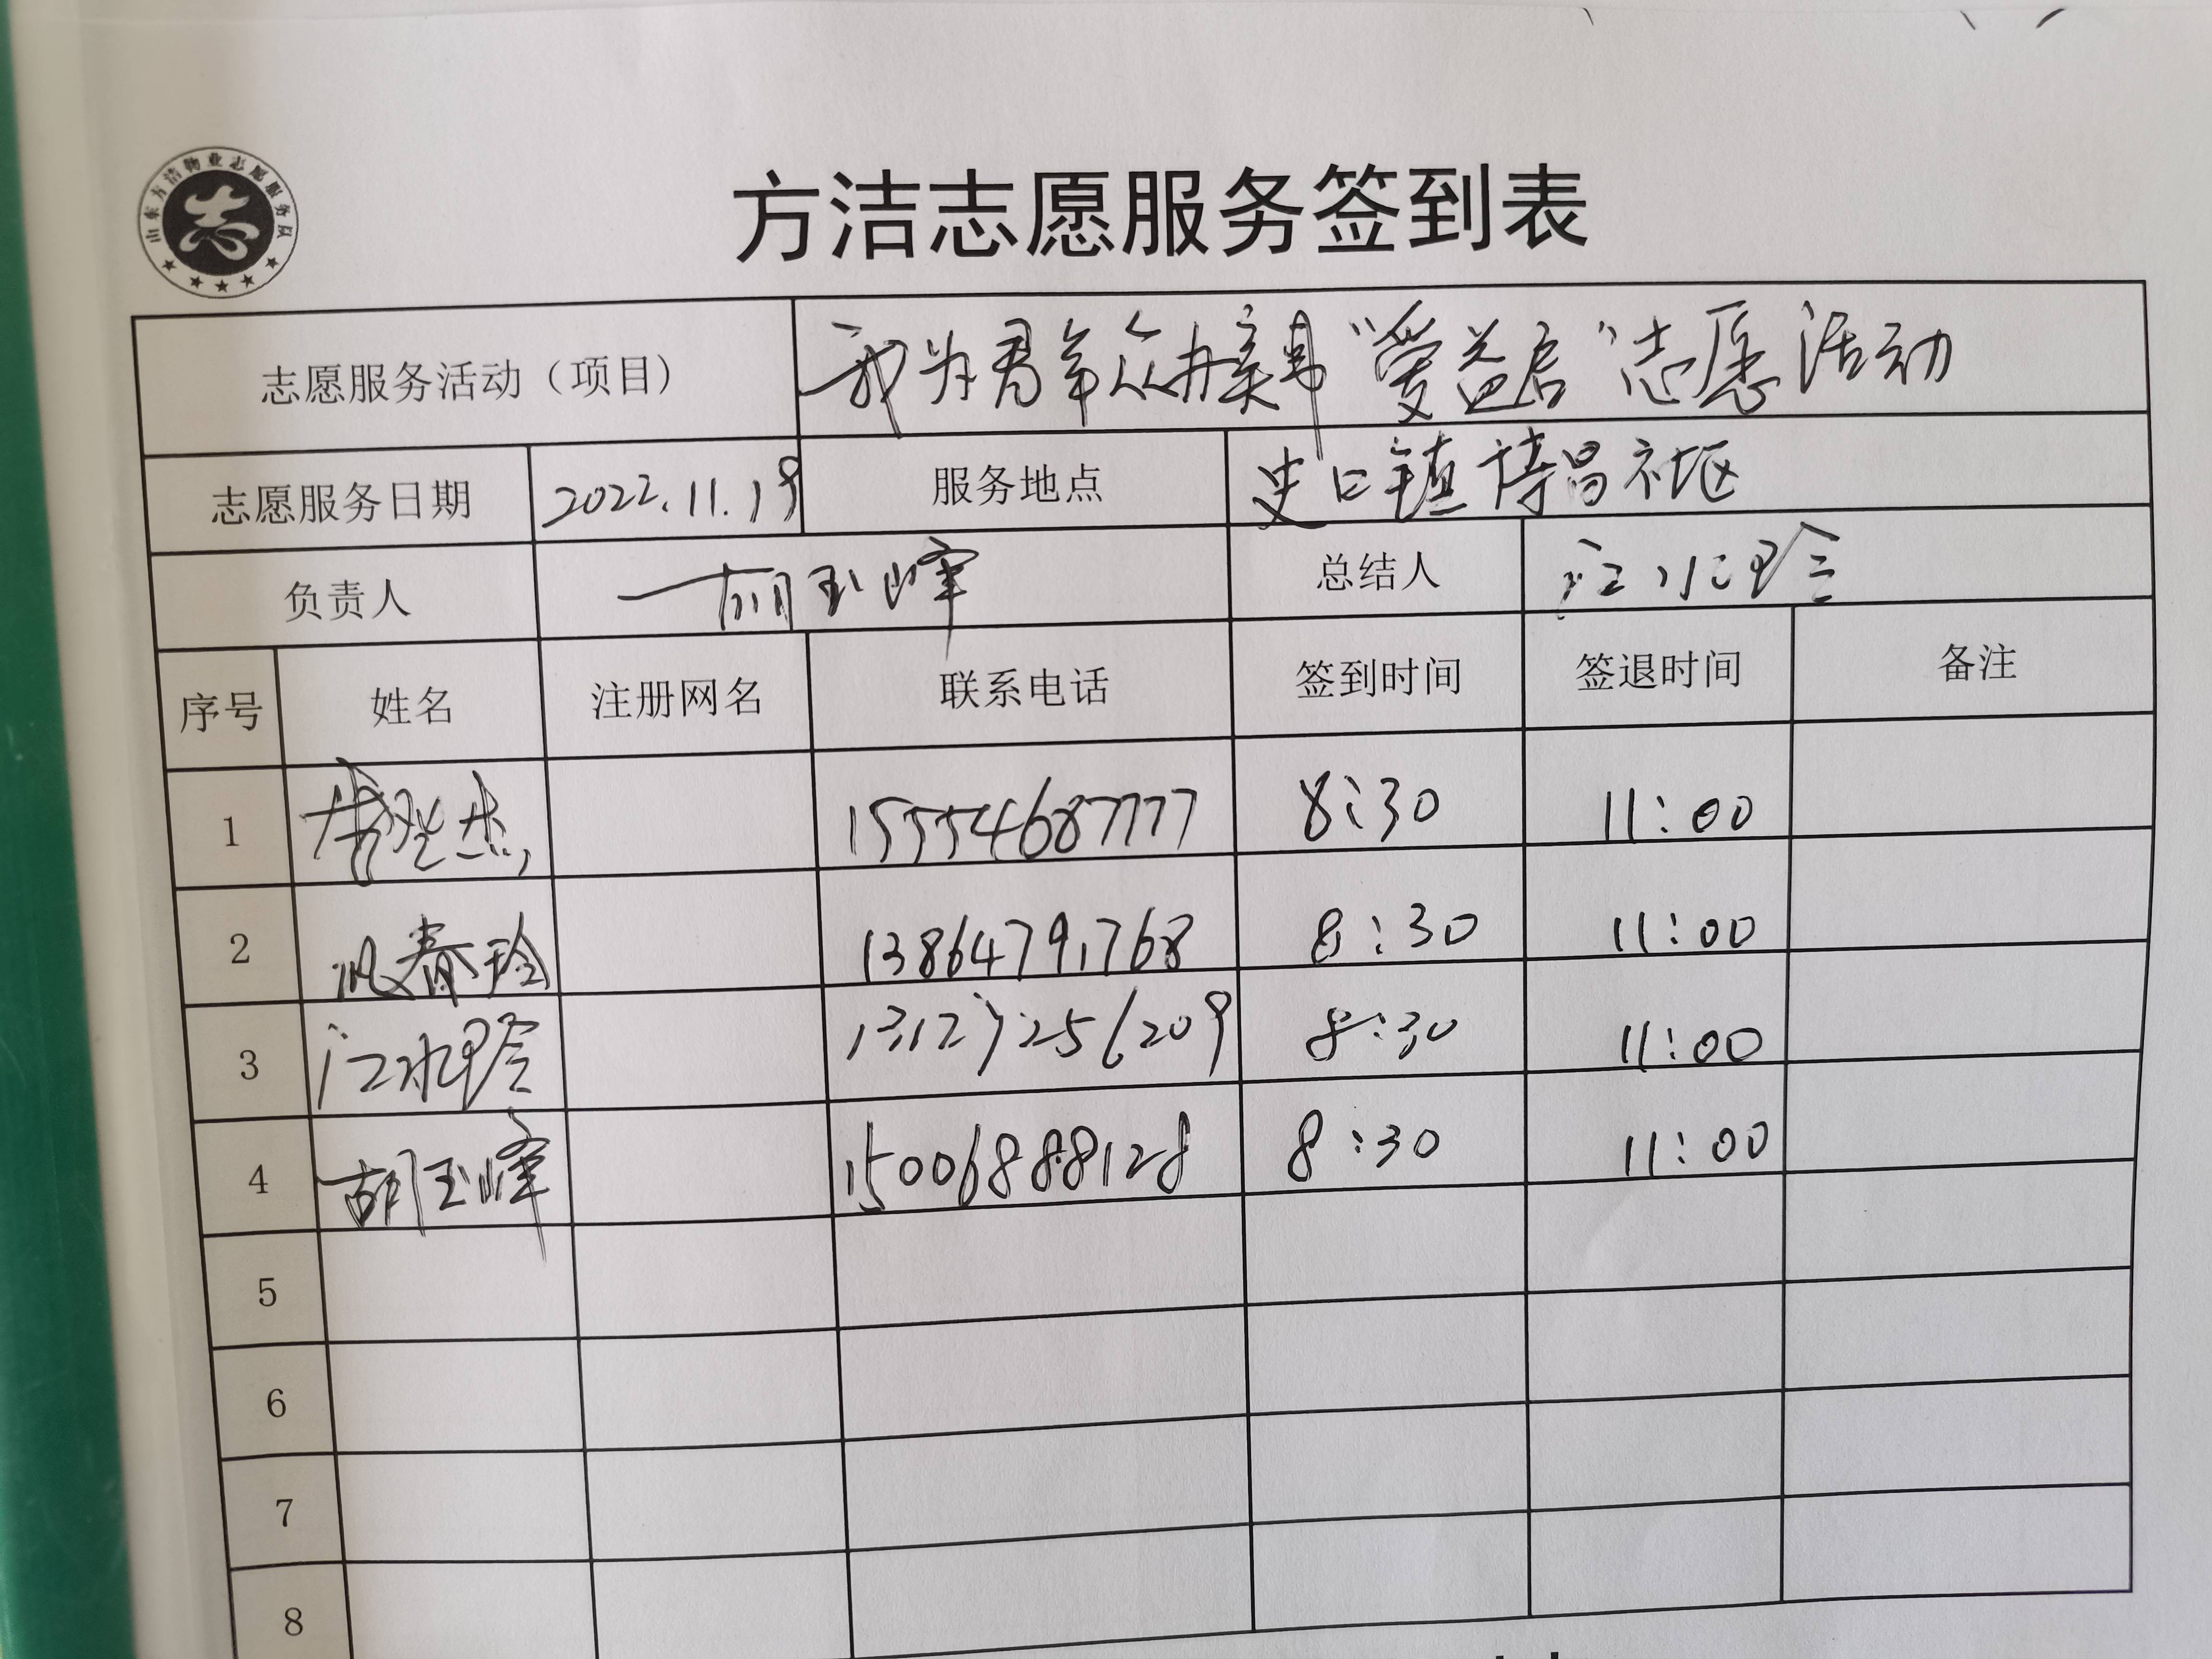 山东方洁物业志愿服务队
志
方洁志愿服务签到表
志愿服务活动（项目） 我为君羊众办实事“爱益启”志愿活动
志愿服务日期 2022.11.19 服务地点 史口镇 昌社区
负责人 胡玉峰 总结人 江水玲
序号 姓名 注册网名 联系电话 签到时间 签退时间 备注
1 15554687777 8:30 11:00
2 春玲 13864791768 8:30 11:00
3 江水玲 13127256209 8:30 11:00
4 胡玉峰 15006888128 8:30 11:00
5
6
7
8